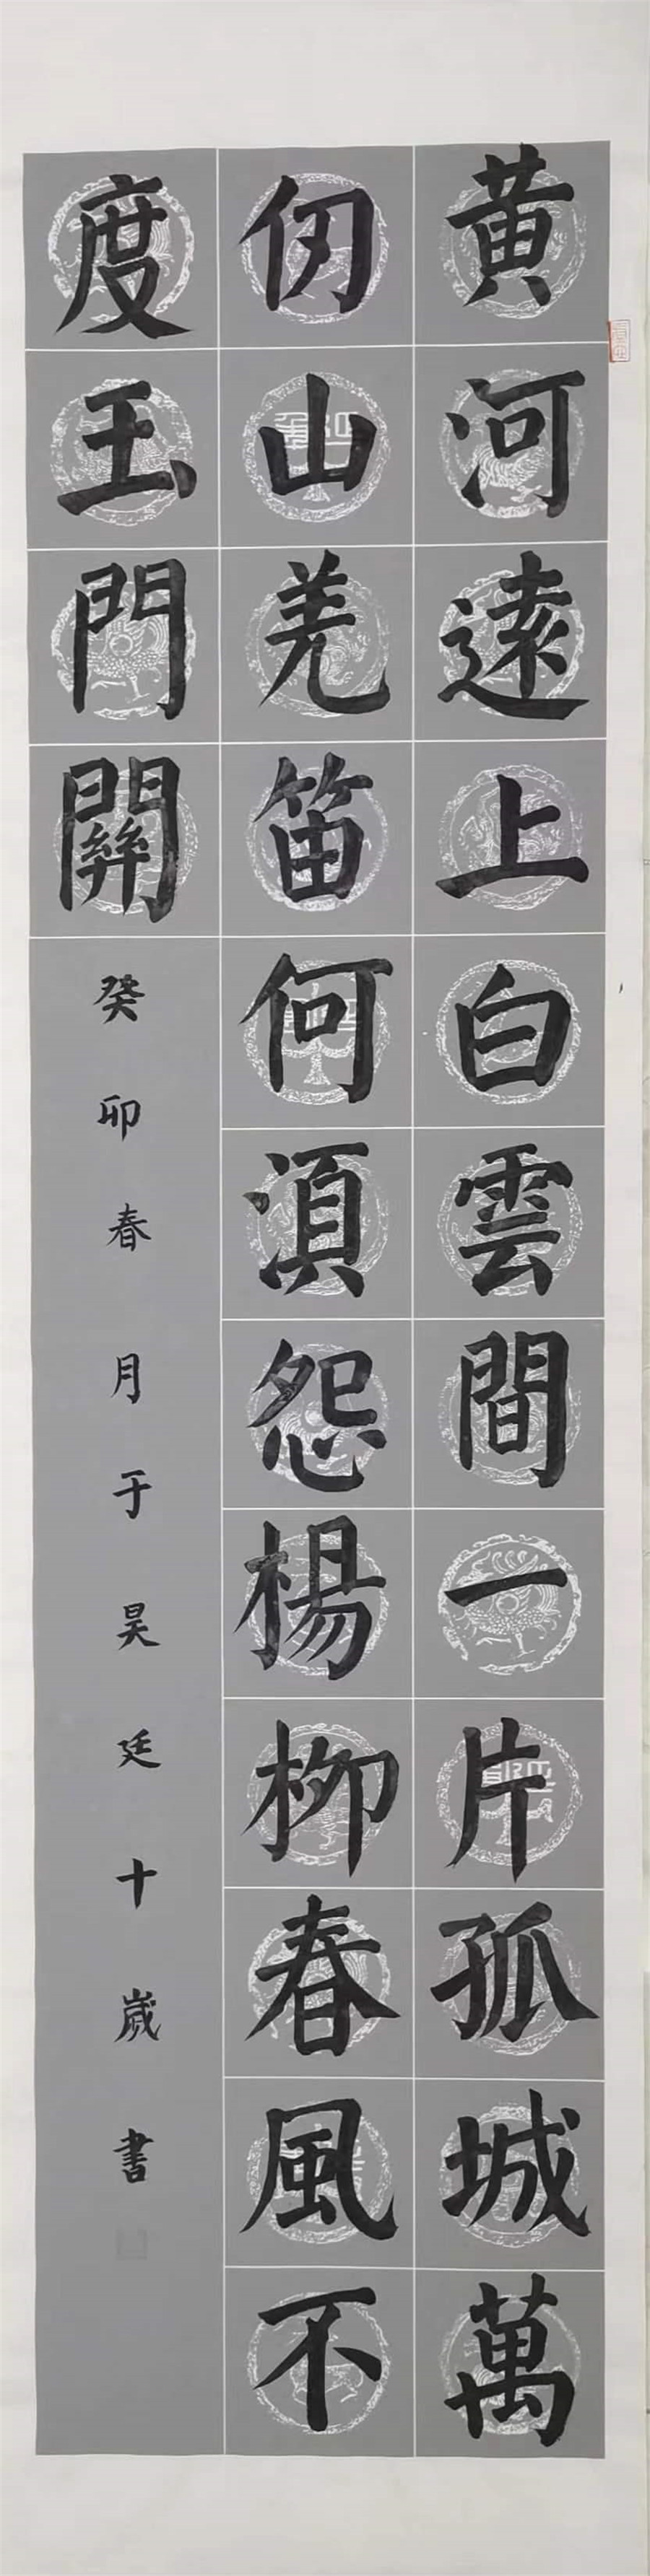 黄河遠上白雲間一片孤城萬
仞山羌笛何須怨楊柳春風不
度玉門關
癸卯春月于昊廷十歲書